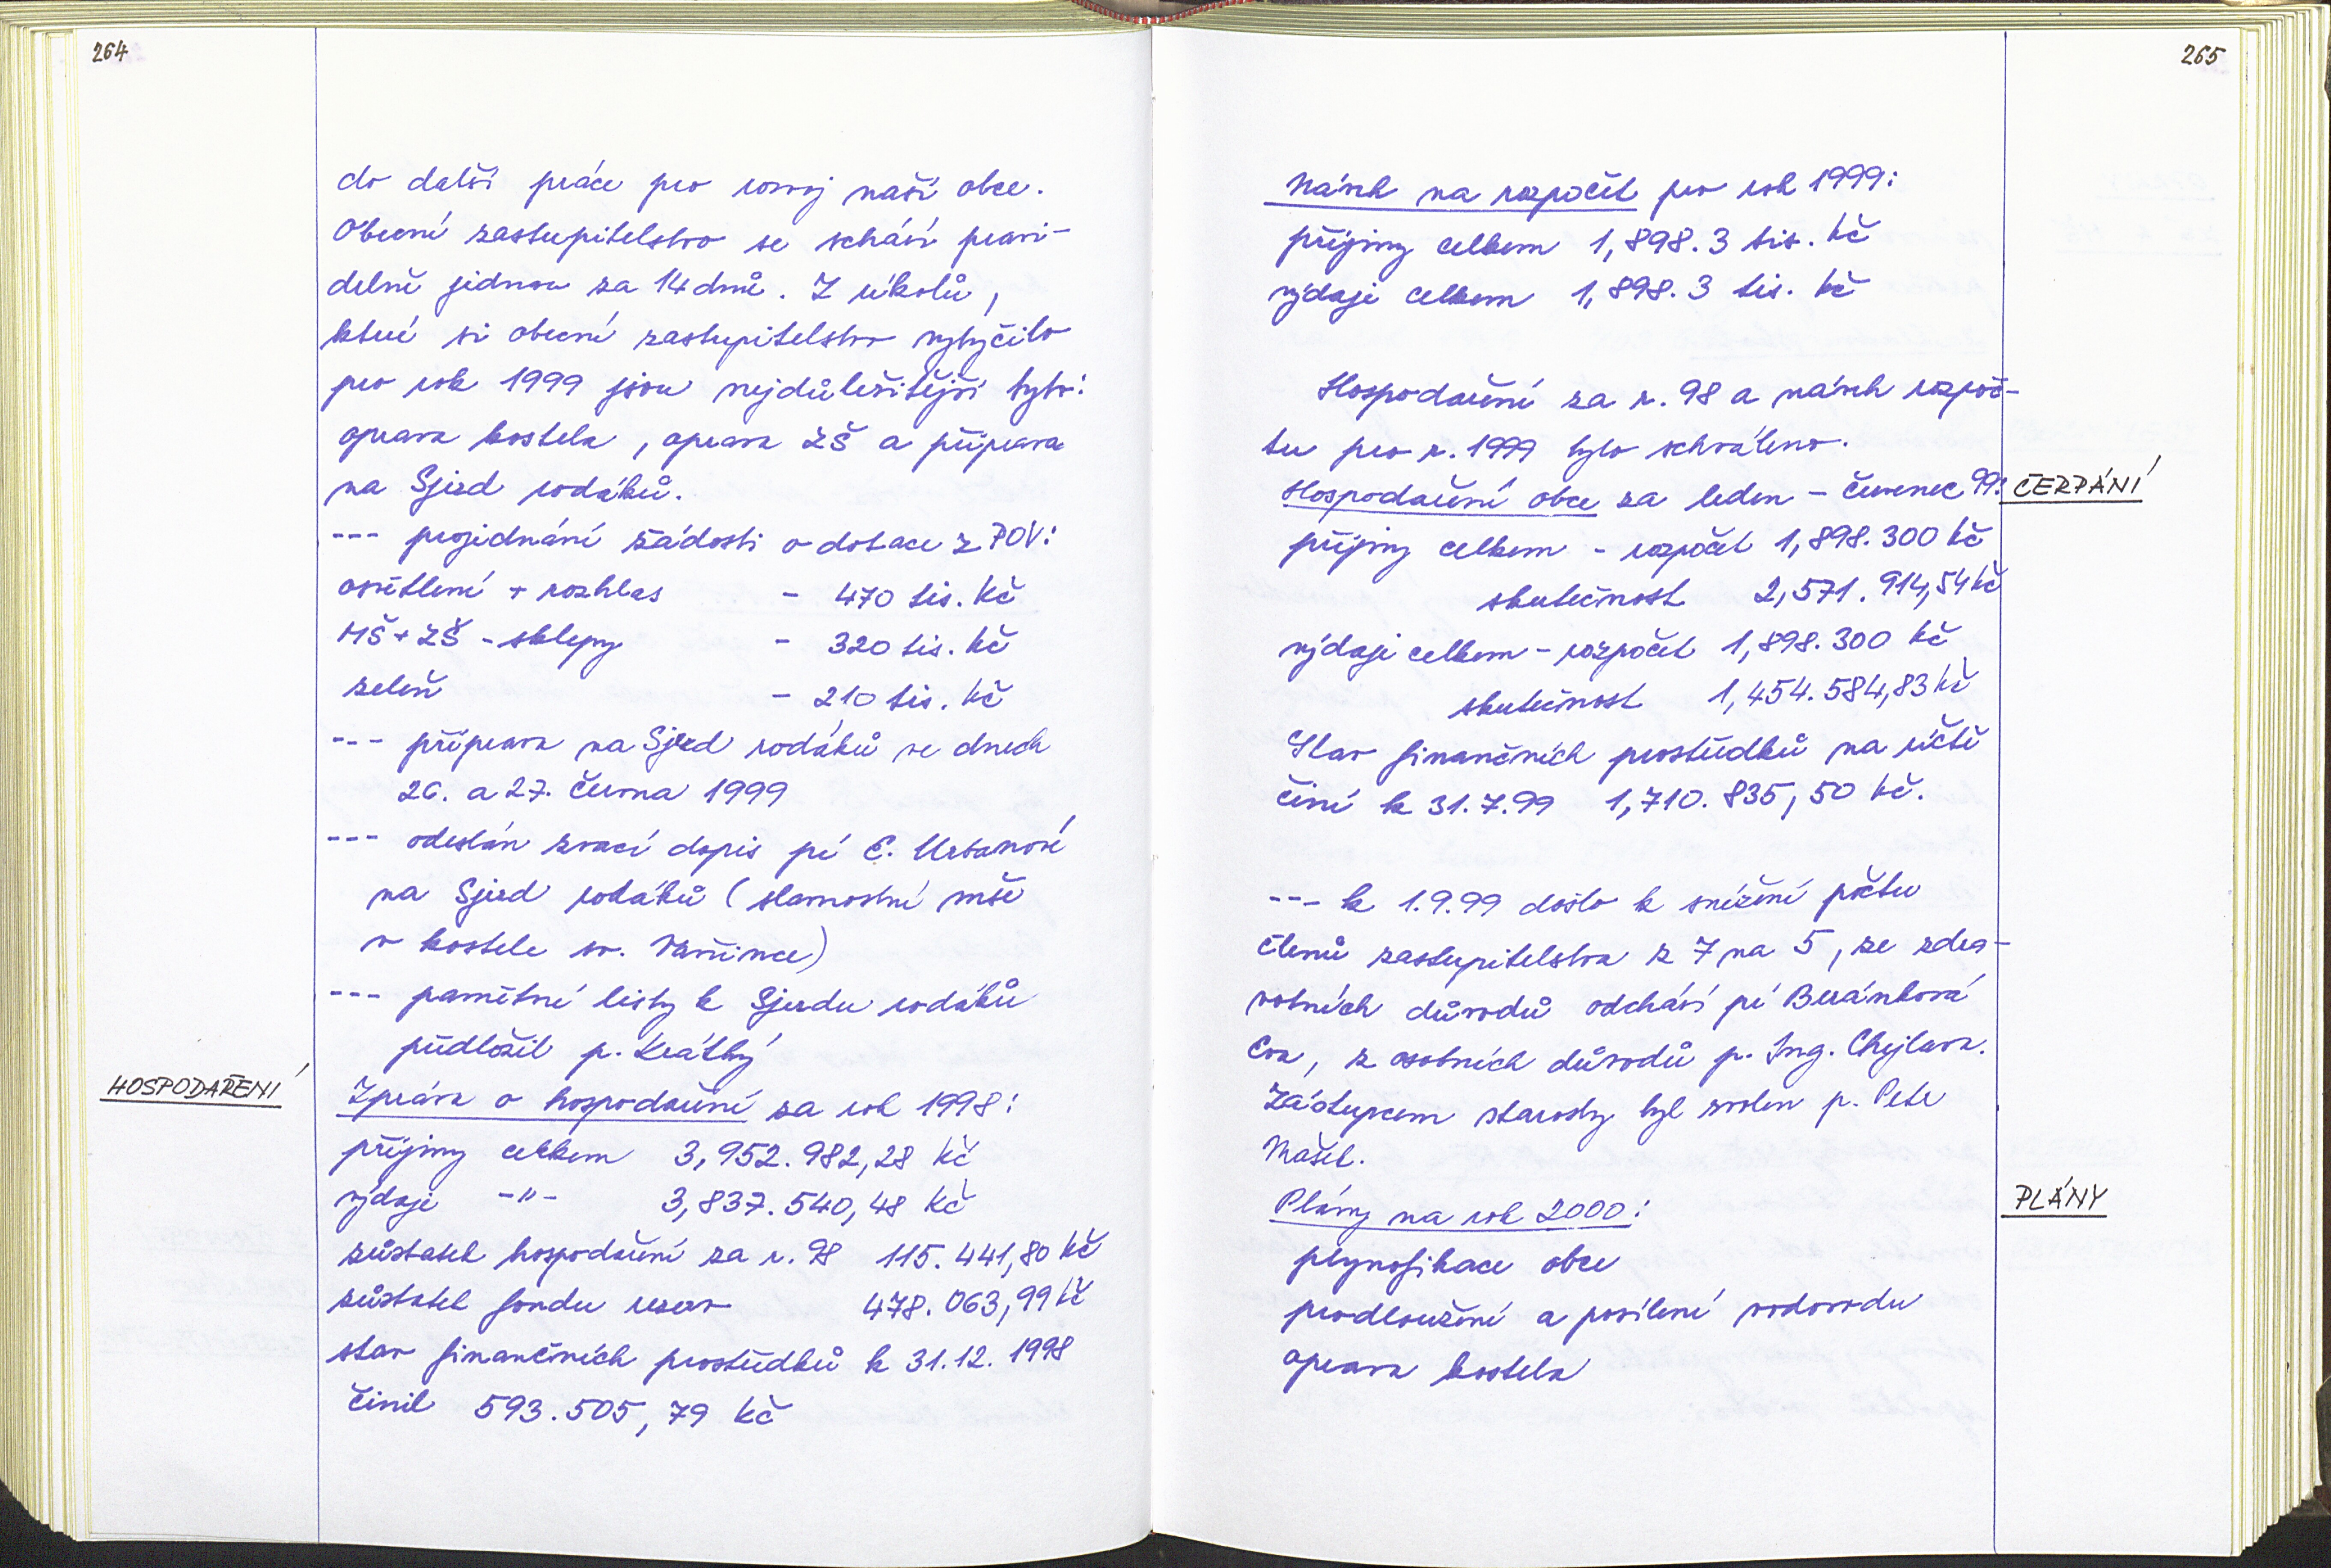 264
do další práce pro rozvoj naší obce.
Obecní zastupitelstvo se schází pravi-
delně jednou za 14 dnů. Z úkolů,
které si obecní zastupitelstvo vytyčilo
pro rok 1999 jsou nejdůležitější tyto:
oprava kostela, oprava ZŠ a příprava
na Sjezd rodáků.
--- projednání žádosti o dotace z POV:
osvětlení + rozhlas - 470 tis. Kč
MŠ + ZŠ - sklepy - 320 tis. Kč
zeleň - 210 tis. Kč
--- příprava na Sjezd rodáků ve dnech
26. a 27. června 1999
--- odeslán zvací dopis pí E. Urbanové
na Sjezd rodáků (slavnostní mše
v kostele sv. Vavřince)
--- pamětní listy k Sjezdu rodáků
předložil p. Krátký
HOSPODAŘENÍ
Zpráva o hospodaření za rok 1998:
příjmy celkem 3,952.982,28 Kč
výdaje -"- 3,837.540,48 Kč
zůstatek hospodaření za r. 98 115.441,80 Kč
zůstatek fondu rezerv 478.063,99 Kč
stav finančních prostředků k 31.12. 1998
činil 593.505,79 Kč
265
Návrh na rozpočet pro rok 1999:
příjmy celkem 1,898.3 tis. Kč
výdaje celkem 1,898.3 tis. Kč
Hospodaření za r. 98 a návrh rozpoč-
tu pro r. 1999 bylo schváleno.
Hospodaření obce za leden - červenec 99:
ČERPÁNÍ
příjmy celkem - rozpočet 1,898.300 Kč
skutečnost 2,571.914,54 Kč
výdaje celkem - rozpočet 1,898.300 Kč
skutečnost 1,454.584,83 Kč
Stav finančních prostředků na účtě
činí k 31.7.99 1,710.835,50 Kč.
--- k 1.9.99 došlo k snížení počtu
členů zastupitelstva z 7 na 5, ze zdra-
votních důvodů odchází pí Beránková
Eva, z osobních důvodů p. Ing. Chejlava.
Zástupcem starosty byl zvolen p. Petr
Mašek.
PLÁNY
Plány na rok 2000:
plynofikace obce
prodloužení a posílení vodovodu
oprava kostela